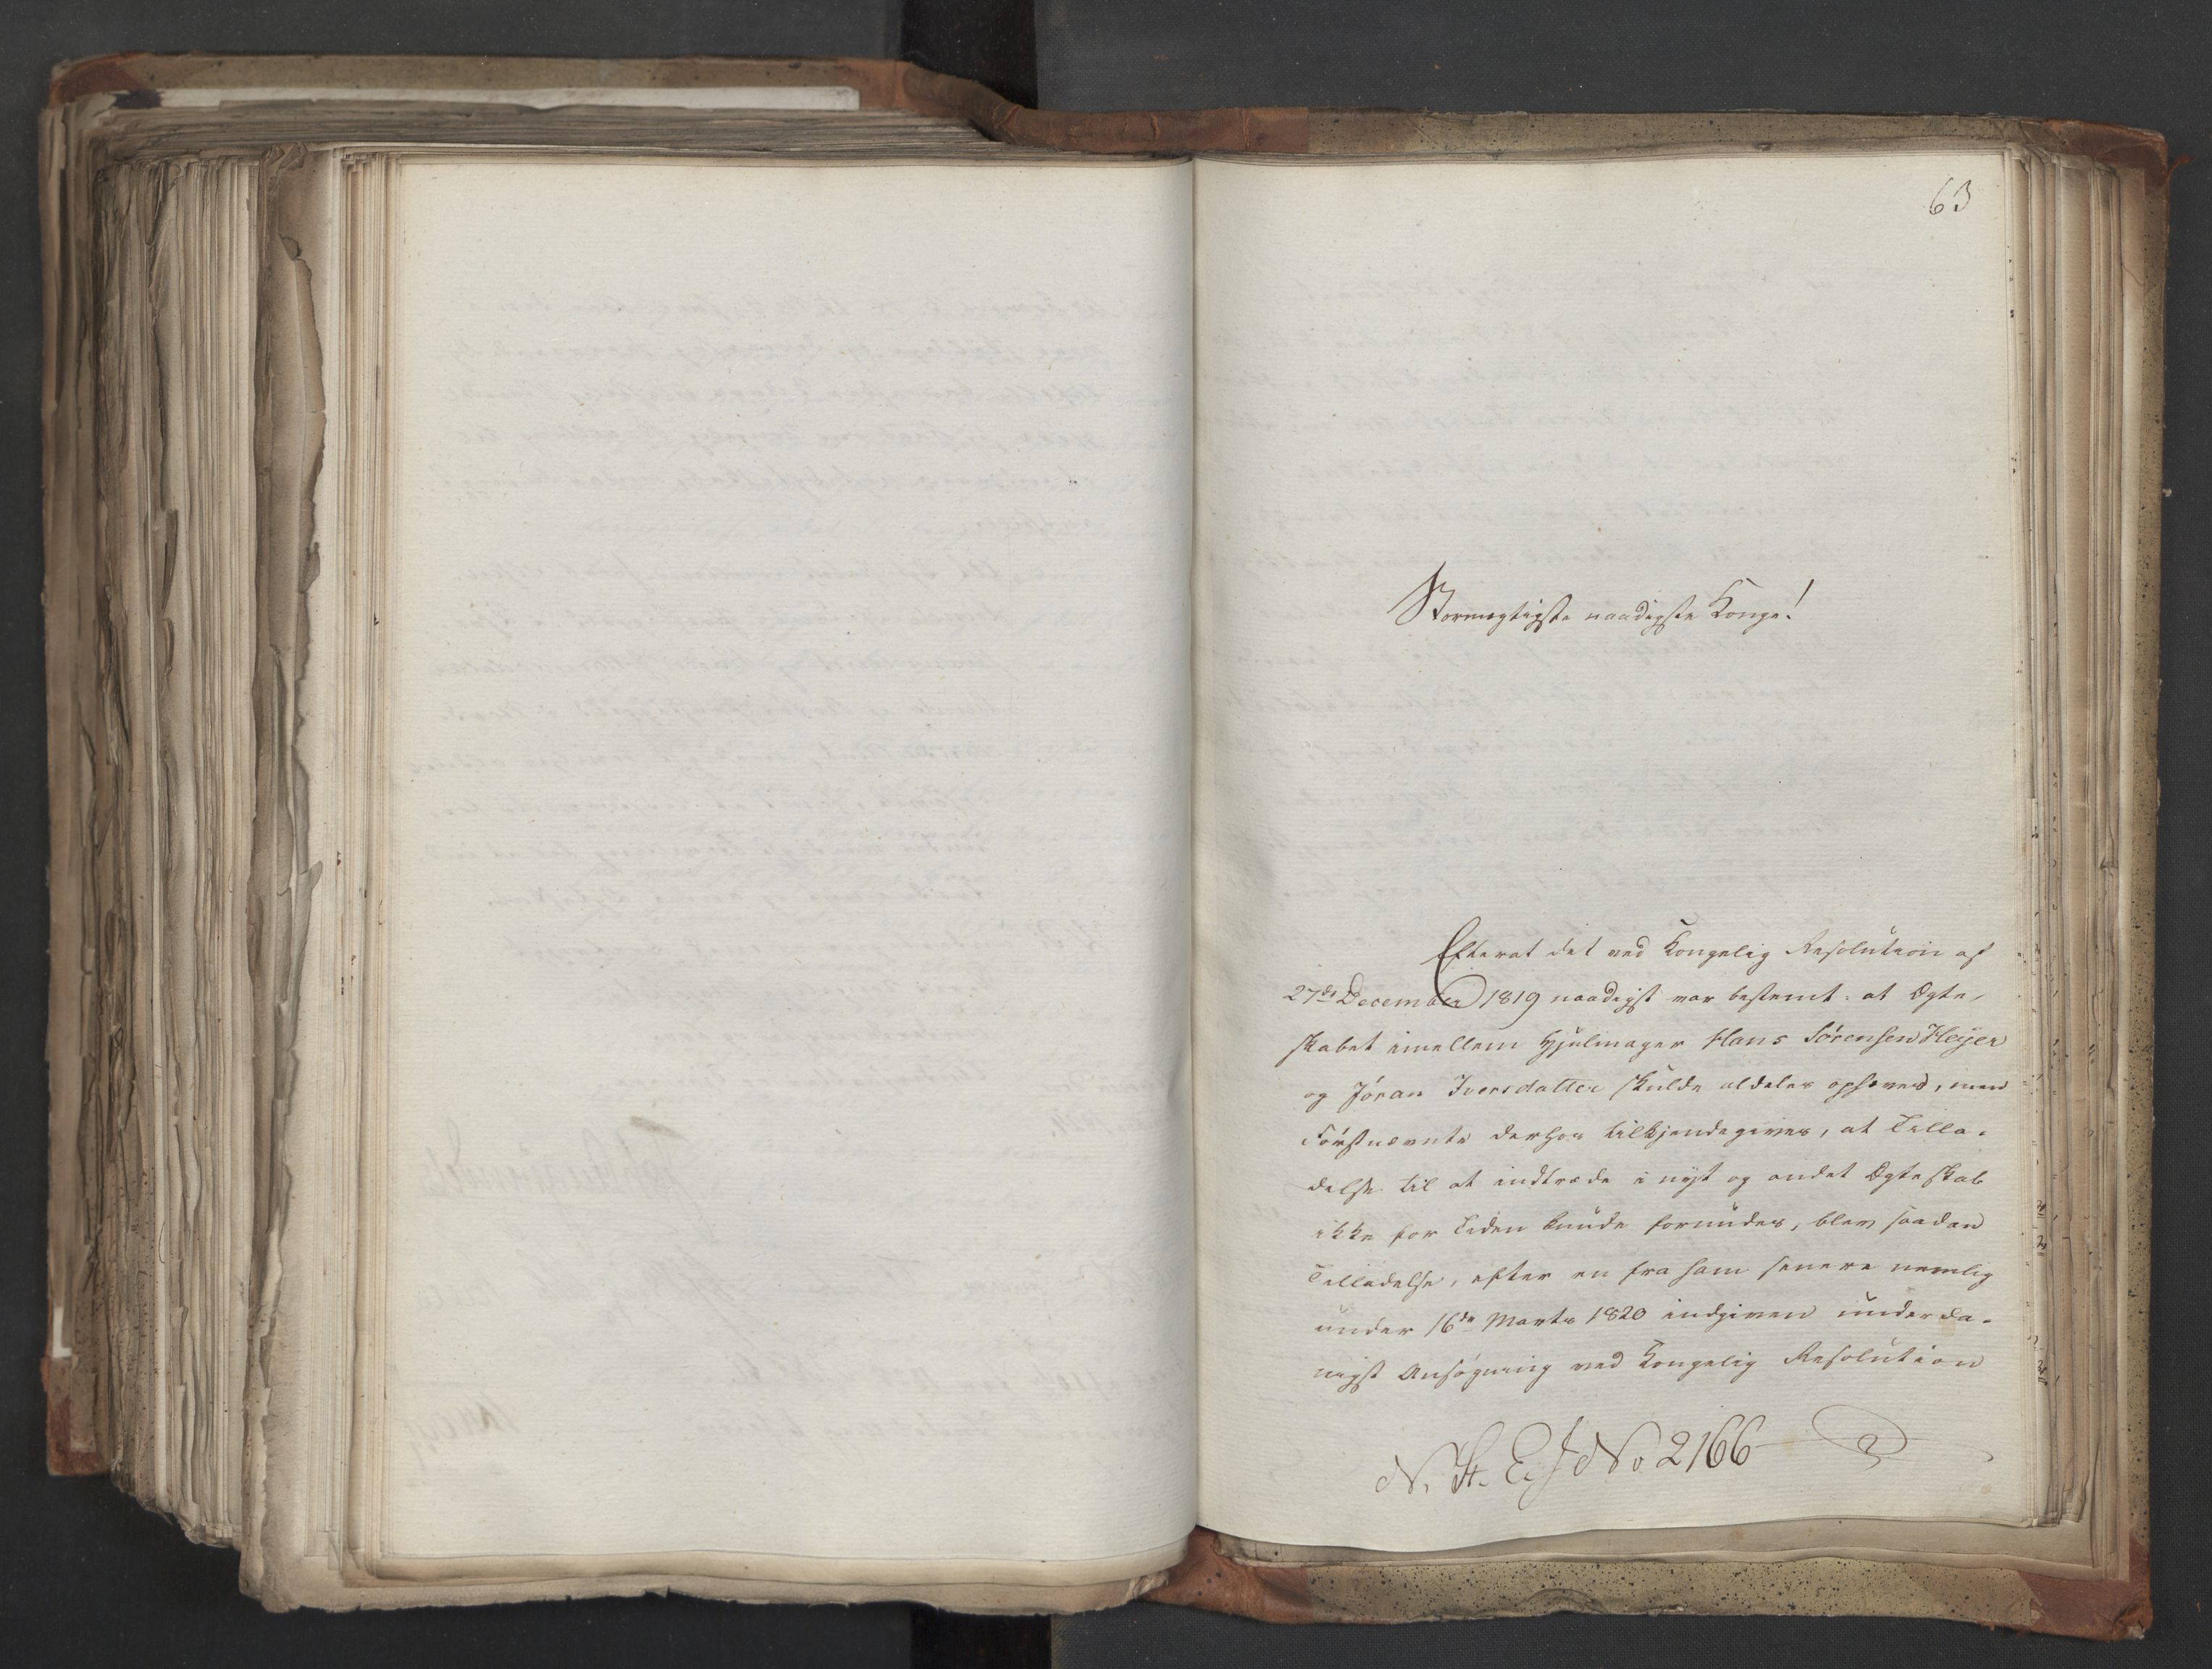 63
Stormægtigste naadigste Konge!
Efterat det ved Kongelig Resolution af
27de December 1819 naadigst var bestemt: at Ægte-
skabet imellem Hjulmager Hans Sørensen Heyer
og Jøran Iversdatter skulde aldeles ophæves, men
Førstnævnte derhos tilkjendegives, at Tilla-
delse til at indtræde i nyt og andet Ægteskab
ikke for Tiden kunde formodes, blev saadan
Tilladelse, efter en fra ham senere nemlig
under 16de Marts 1820 indgiven underda-
nigst Ansøgning ved Kongelig Resolution
N. St. E. J No 2166